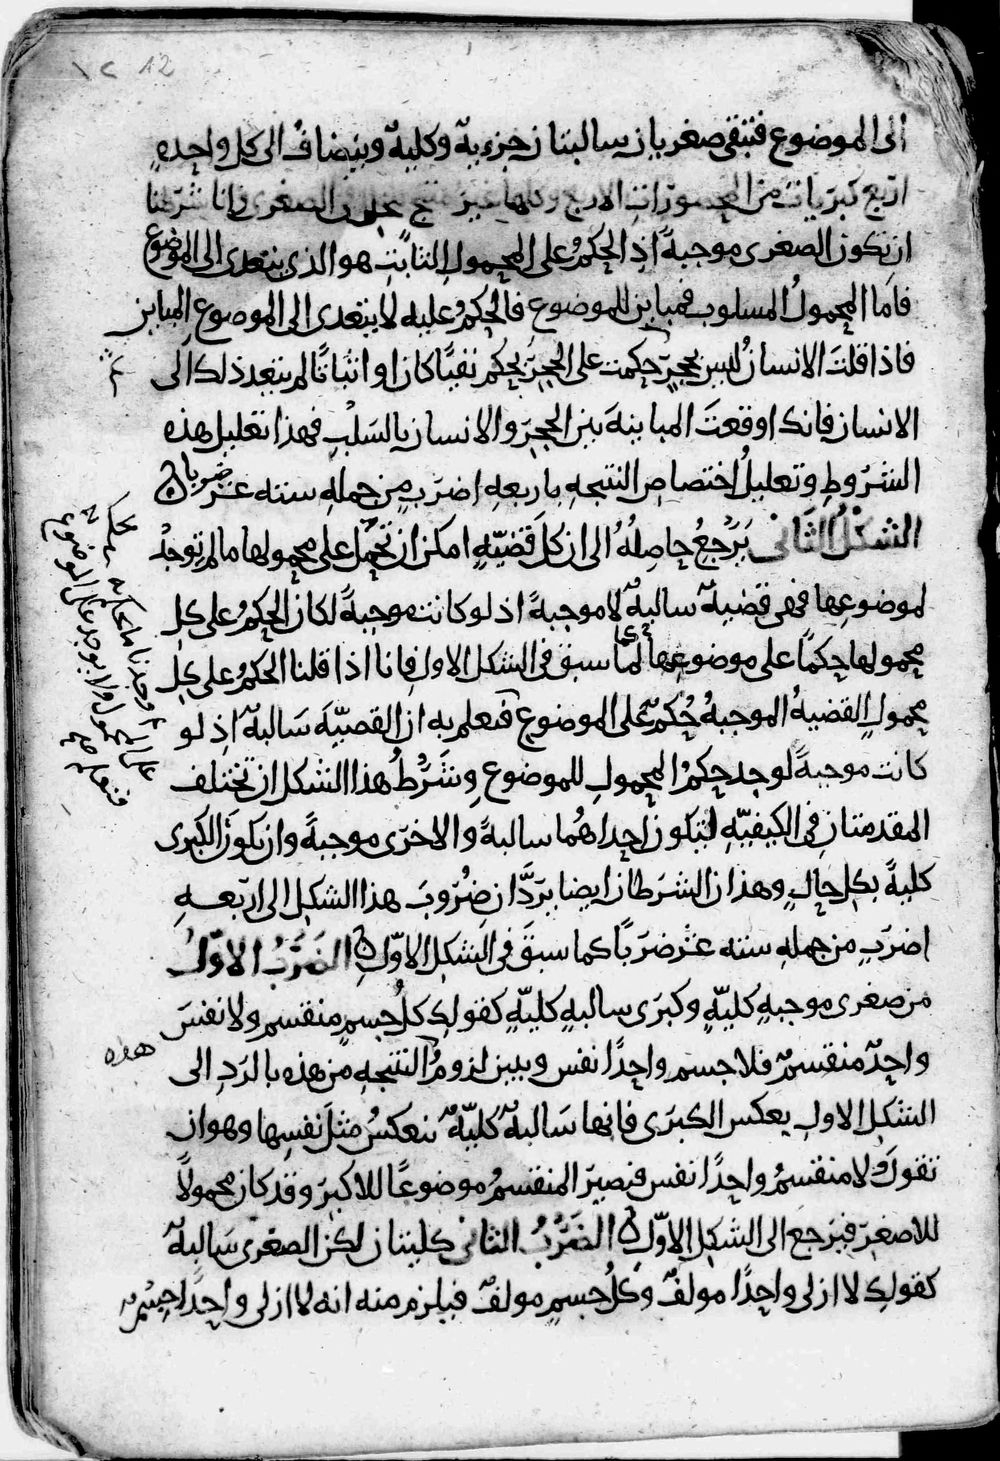 ١٢ 12
الى الموضوع فتبقى صغريان سالبتان جزءية وكلية وينضاف الى كل واحدة
اربع كبريات من المحصورات الاربع وكلها غير منتج بخلل في الصغرى وانا شرطنا
ان تكون الصغرى موجبةً اذ الحكم على المحمول الثابت هو الذى يتعدى الى الموضوع
فاما المحمولُ المسلوب فمباين للموضوع فالحكمُ عليه لا يتعدى الى الموضوع المباين
فاذا قلتَ الانسانُ ليس بحجرٍ حكمت على الحجر بحكم نفيًا كان او اثباتًا لم يتعد ذلك الى
الانسان فانك اوقعتَ المباينةَ بين الحجرِ والانسان بالسَلْبِ فهذا تعليل هذه
الشروطِ وتعليلُ اختصاص النتيجه باربعه اضربٍ من جملهِ سته عشر ضربا ن
الشكل الثانى يَرْجعُ حاصِلُهُ الى ان كلَ قضيّهٍ امكن ان تحمل على محمولها ما لم توجدْ
لموضوعِها فهى قضيةٌ سالبةٌ لا موجبةً اذ لو كانت موجبةً لكان الحكمُ على كل
محمولها حكمًا على موضوعِها كما سبق فى الشكل الاول فانا اذا قلنا الحكمُ على كل
محمولِ القضيهُ الموجبهُ حُكمٌ على الموضوعِ فنعلم به ان القضيّهَ سَالبةٌ اذ لو
كانت موجبةً لوجد حكمُ المحمولِ للموضوع وشَرْطُ هذا الشكل ان تختلف
المقدمتان فى الكيفيّهِ لتكون احداهُما سالبةً والاخرى موجبةً وان يكونَ الكبرى
كليةً بكل حالٍ وهذان الشرطان ايضا يردَّانِ ضُرُوبَ هذا الشكل الى اربعهِ
اضربٍ من جملهِ سته عشر ضربًا كما سبقَ فى الشكل الاوّل ن الضَرْبُ الاوّلُ
من صغرى موجبهٍ كليّهٍ وكبرَى سالبهٍ كليّهٍ كقولك كلُ جسمٍ منقسم ولا نفسَ
واحدٌ منقسمٌ فلا جسم واحدًا نفس ويبين لزومُ النتيجهِ من هذه بالردِ الى
هذه
الشكل الاول بعكس الكبرَى فانها سَالبةٌ كليّةٌ تنعكسُ مثلَ نفسِها وهو ان
تقولَ ولا منقسمُ واحدًا نفس فيصيرَ المنقسمُ موضوعًا للاكبرَ وقد كان محمولًا
للاصغرِ فيرجعَ الى الشكل الاوّل ن الضَرْبُ الثانى كليتان لكن الصغرى سَالبةٌ
كقولك لا ازلى واحدًا مولفٌ وكلُ جسمٍ مولفٌ فيلزم منه انه لا ازلى واحدًا جسْمٌ